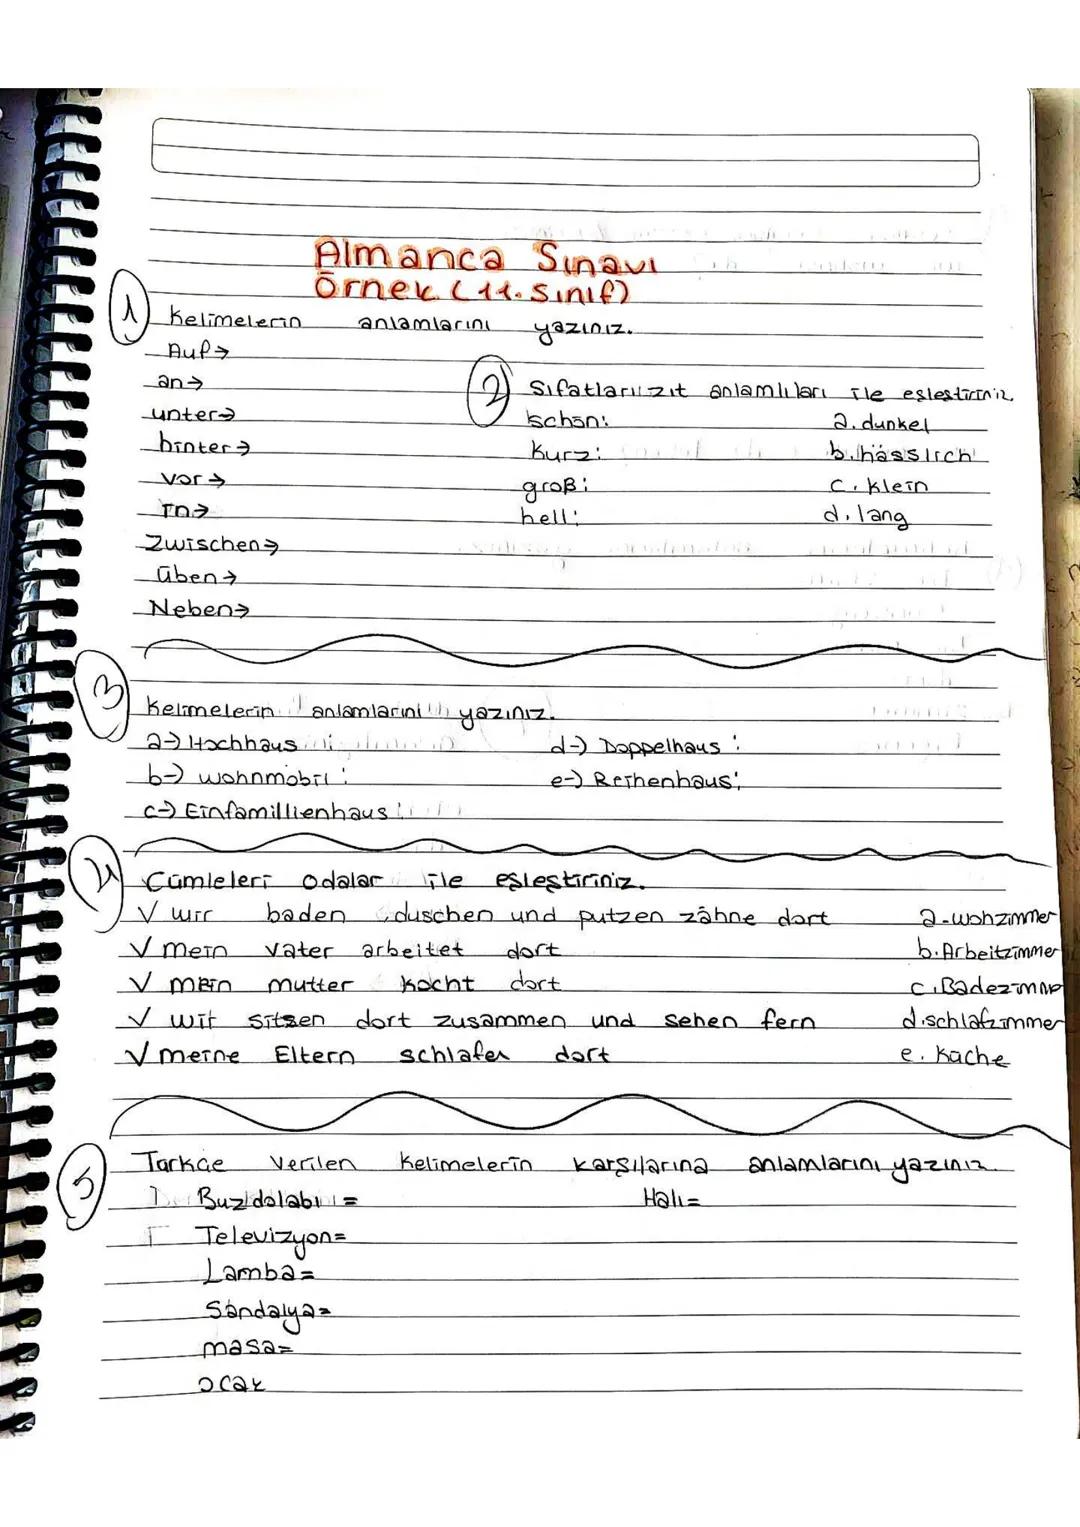 Almanca Sınavı
Örnek (11. Sınıf)
1 Kelimelerin anlamlarını yazınız.
Auf→
an→
unter→
hinter→
vor→
in→
Zwischen→
üben→
Neben→
2 Sıfatları zıt anlamlıları ile eşleştiriniz.
schön: a. dunkel
kurz: b. hässlich
groß: c. klein
hell: d. lang
3 Kelimelerin anlamlarını yazınız.
a-) Hochhaus : d-) Doppelhaus :
b-) wohnmobil : e-) Reihenhaus:
c-) Einfamillienhaus :
4 Cümleleri odalar ile eşleştiriniz.
√ wir baden, duschen und putzen zähne dort a-wohzimmer
√ mein vater arbeitet dort b. Arbeitzimmer
√ mein mutter kocht dort c. Badezimmer
√ wit sitzen dort zusammen und sehen fern d. schlafzimmer
√ meine Eltern schlafen dort e. küche
5 Türkçe verilen kelimelerin karşılarına anlamlarını yazınız.
Buzdolabı = Halı=
Televizyon=
Lamba=
Sandalya=
masa=
ocak